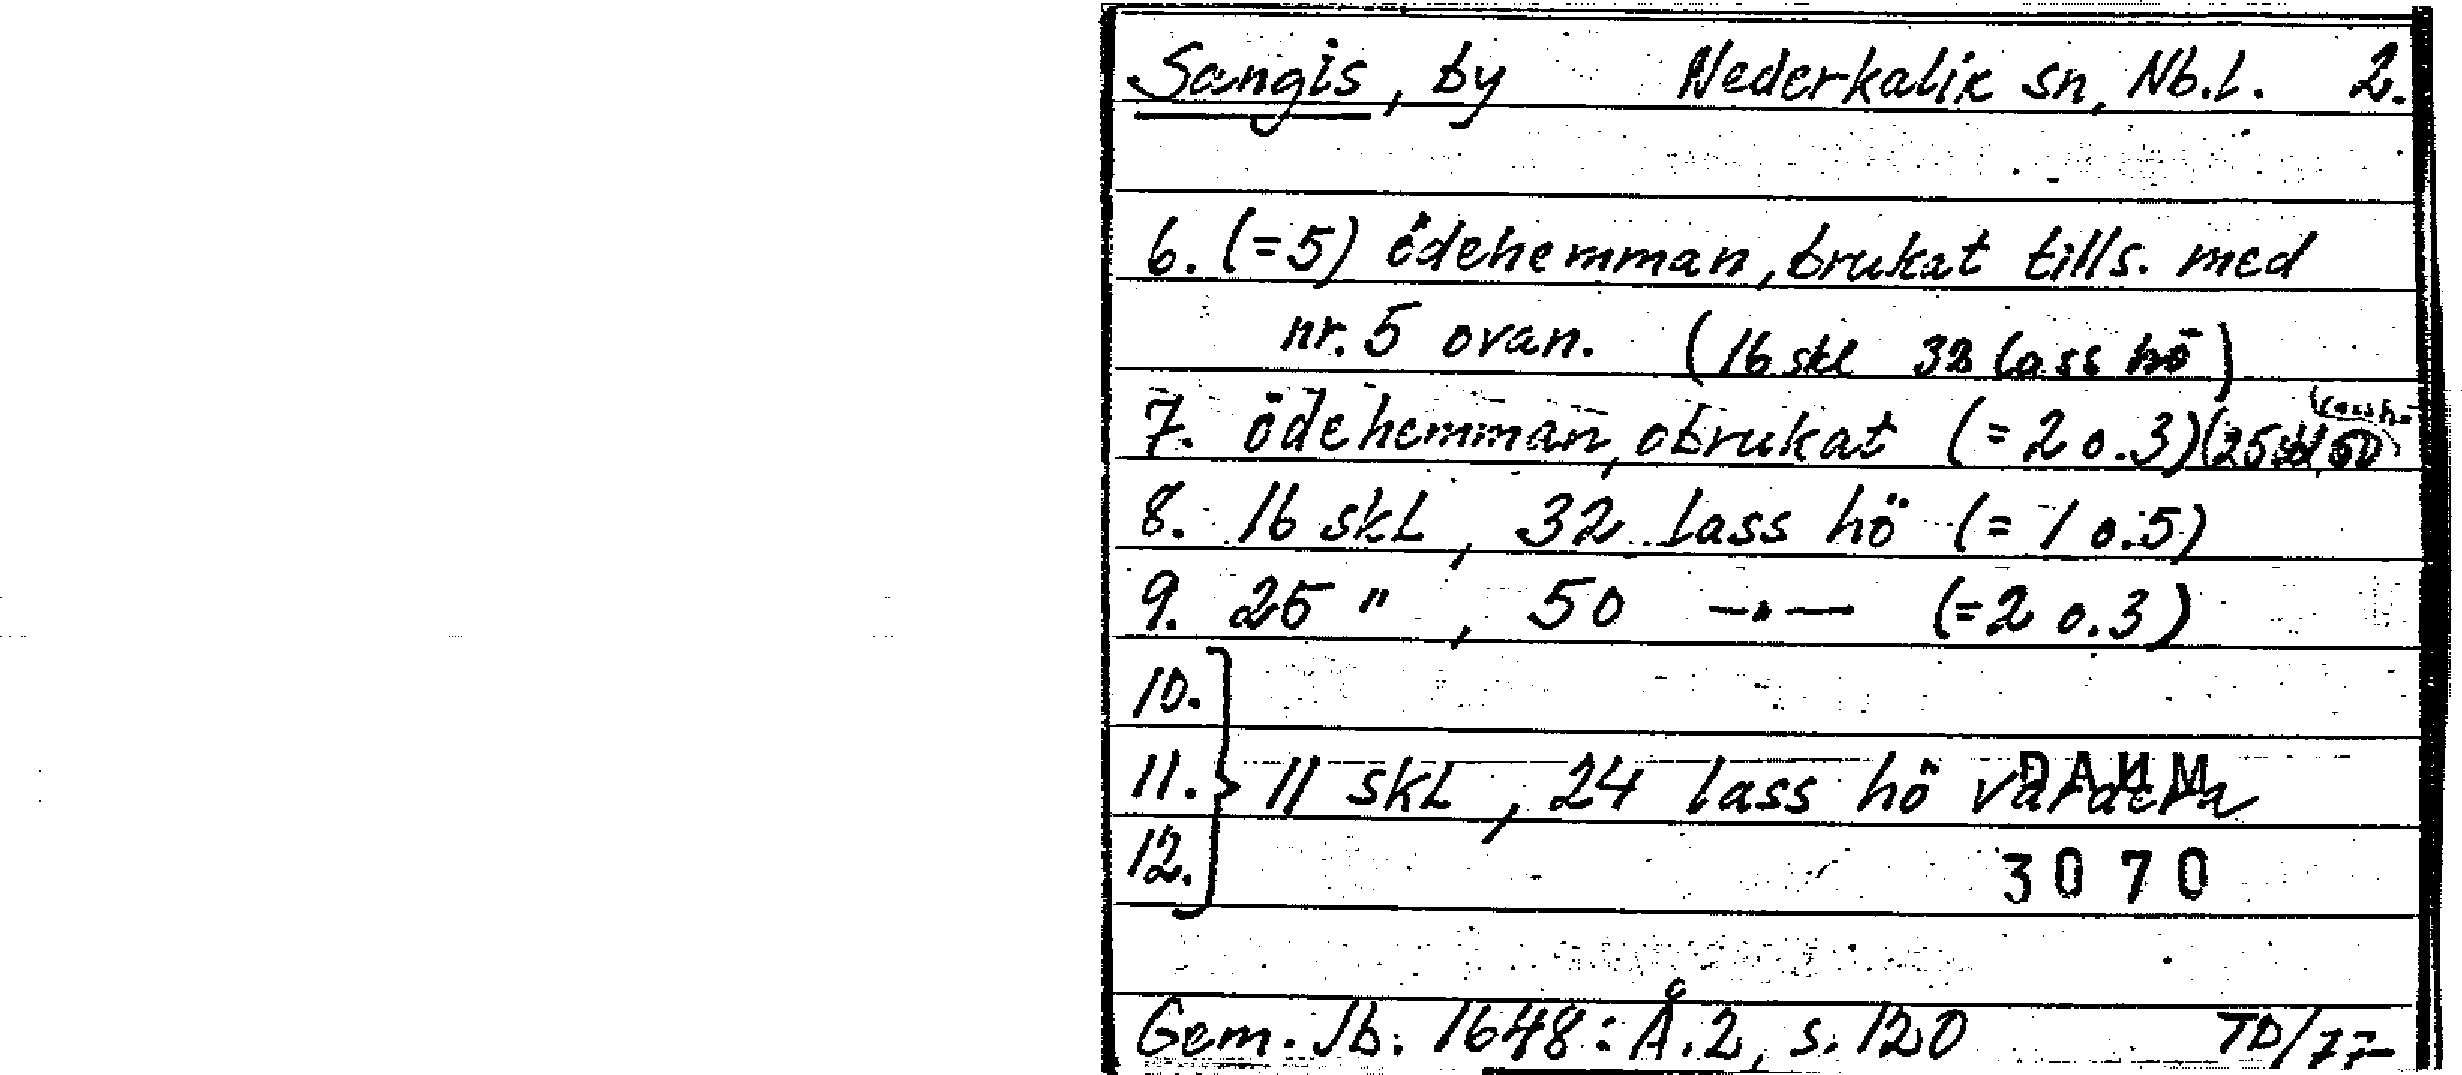 Sangis, by Nederkalix sn, Nb.l. 2.
6. (=5) ödehemman, brukat tills. med
nr. 5 ovan. (16 skl 32 lass hö)
7. ödehemman, obrukat (= 2 o. 3) (25 skl, 50 lass hö)
8. 16 skl, 32 lass hö (= 1 o. 5)
9. 25 " , 50 —"— (= 2 o. 3)
10.
11. } 11 skl, 24 lass hö vardera
DAUM
12.
3070
Gem. Jb. 1648: Å.2, s. 120 TD/77